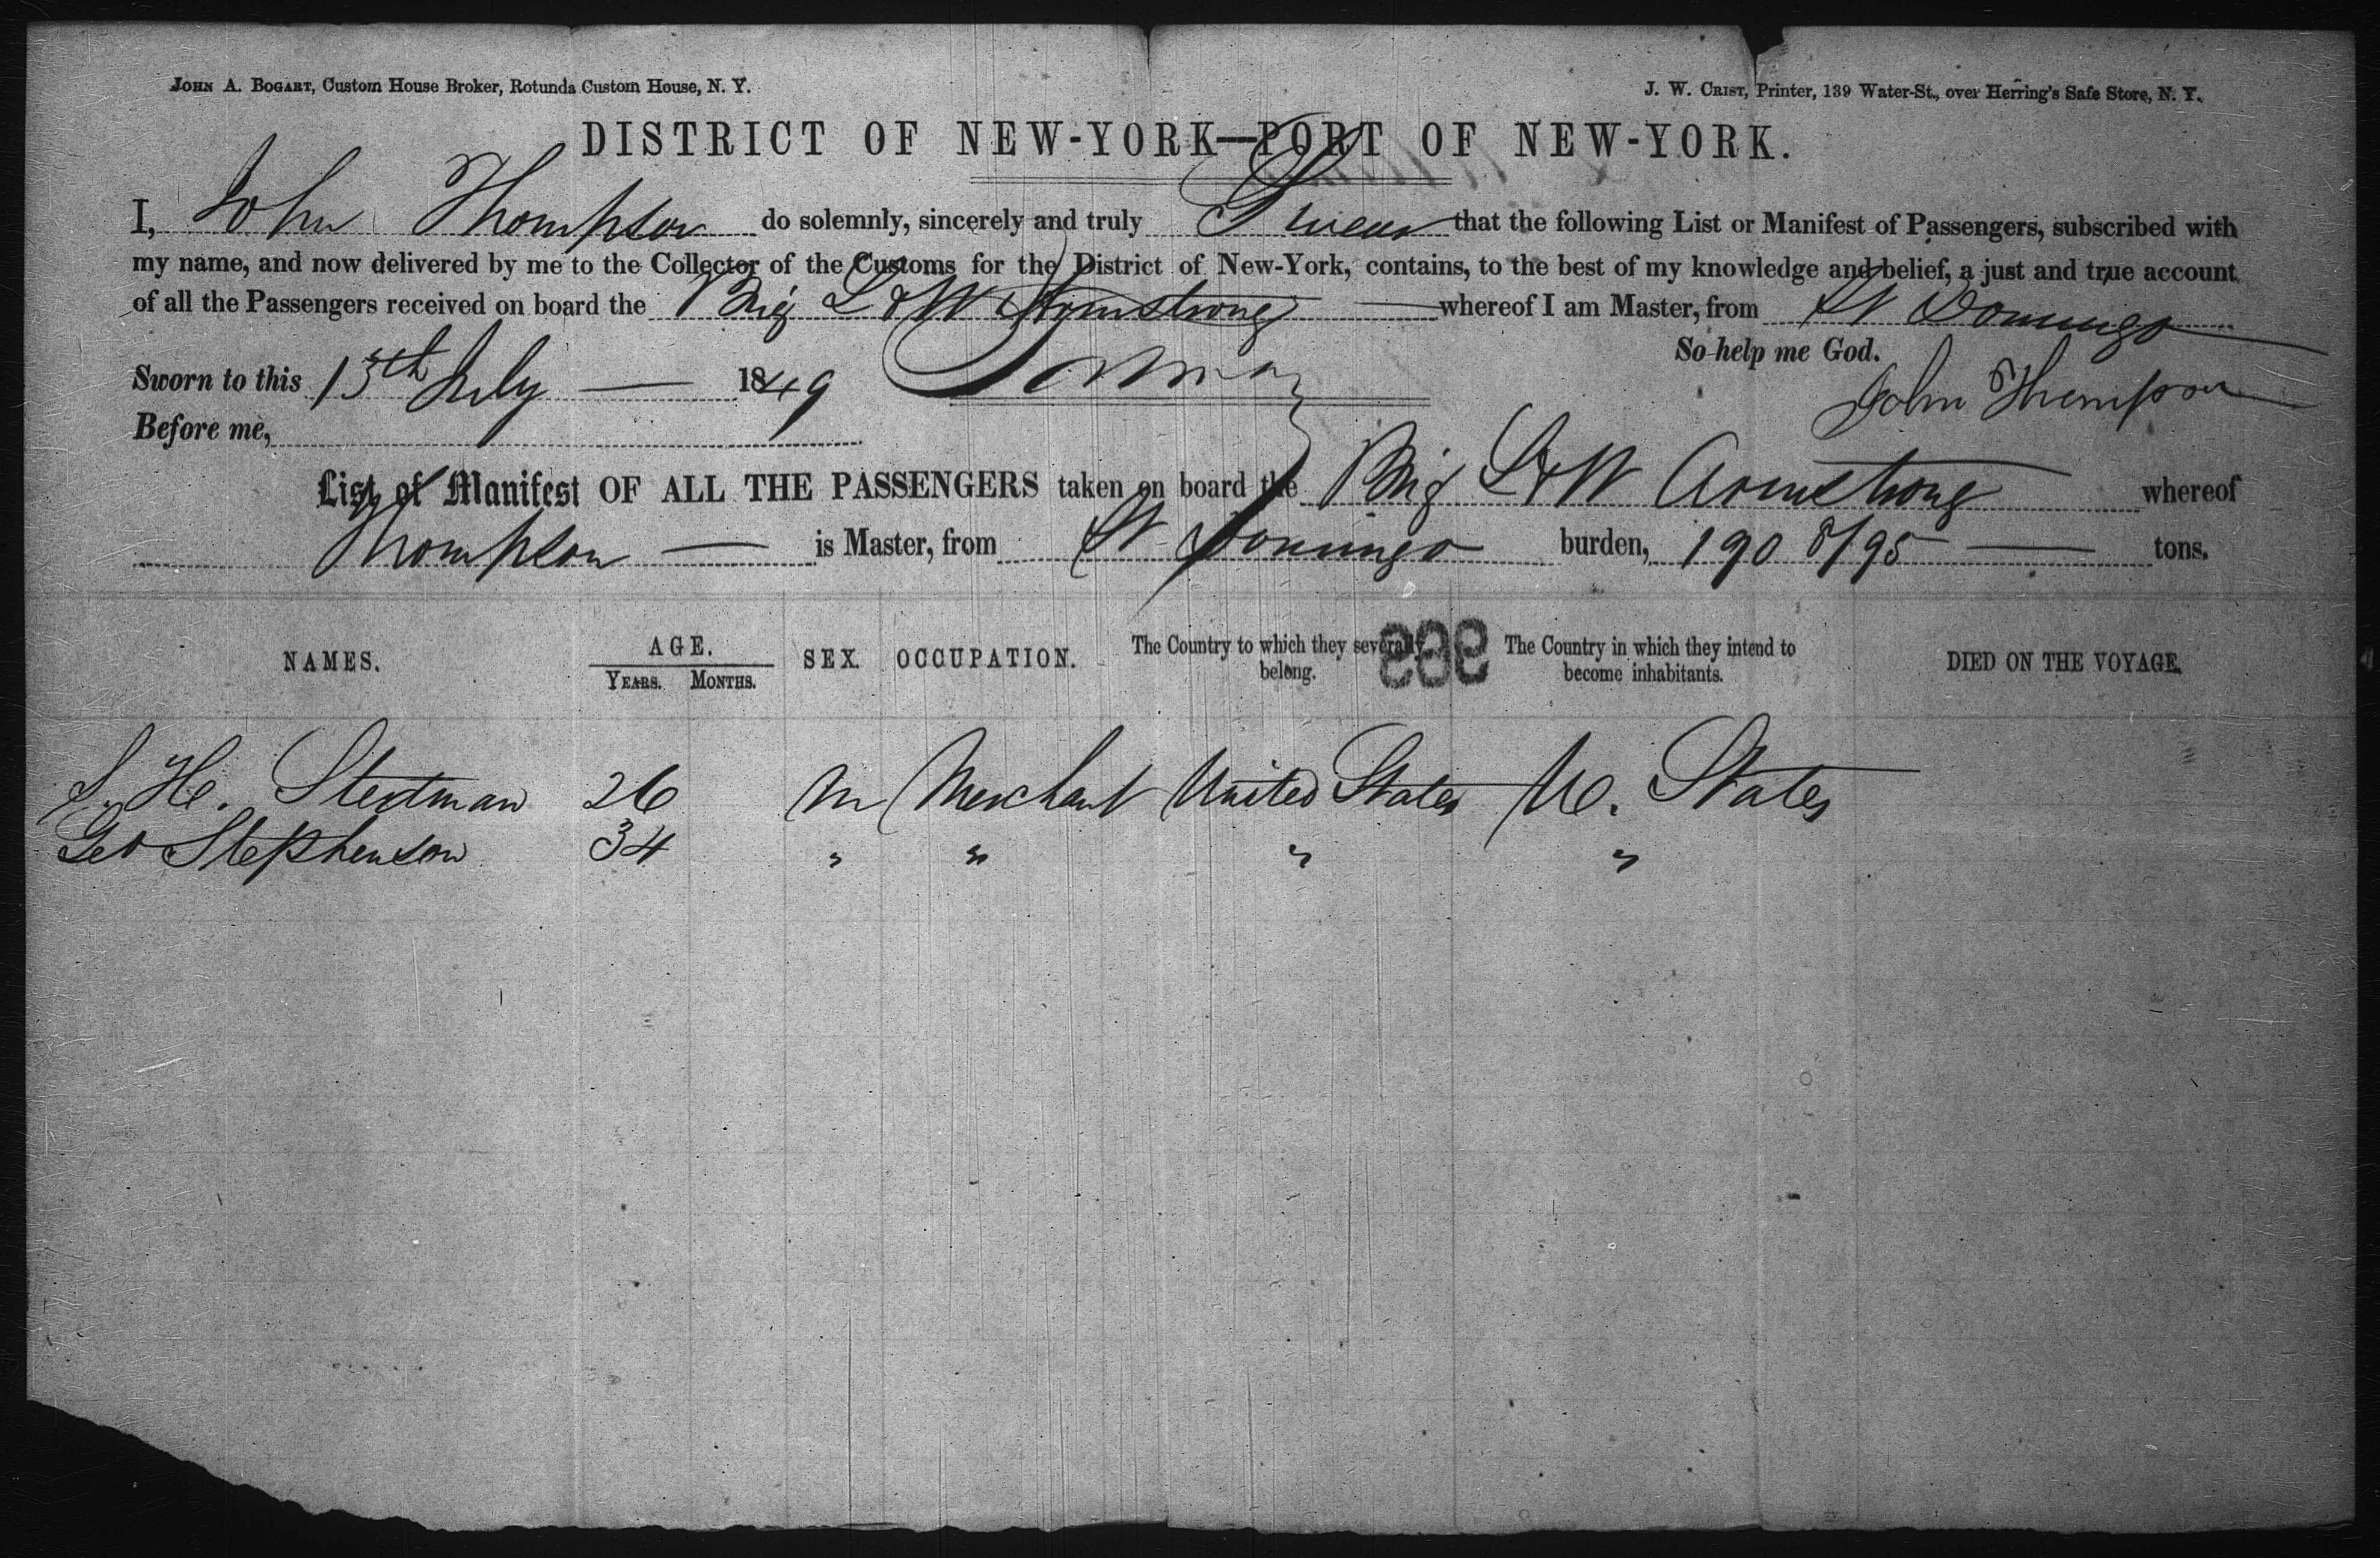 JOHN A. BOGART, Custom House Broker, Rotunda Custom House, N. Y.
J. W. CRIST, Printer, 139 Water-St., over Herring's Safe Store, N. Y.
DISTRICT OF NEW-YORK—PORT OF NEW-YORK.
I, John Thompson do solemnly, sincerely and truly Swear that the following List or Manifest of Passengers, subscribed with
my name, and now delivered by me to the Collector of the Customs for the District of New-York, contains, to the best of my knowledge and belief, a just and true account
of all the Passengers received on board the Brig L & W Armstrong whereof I am Master, from St Domingo
So help me God.
Sworn to this 13th July 1849
John Thompson
Before me,
List of Manifest OF ALL THE PASSENGERS taken on board the Brig L & W Armstrong whereof
Thompson is Master, from St Domingo burden, 190 8/95 tons.
NAMES. AGE. SEX. OCCUPATION. The Country to which they severally belong. The Country in which they intend to become inhabitants. DIED ON THE VOYAGE.
YEARS. MONTHS.
S. H. Stedman 26 M Merchant United States U. States
Geo Stephenson 34 " " " "